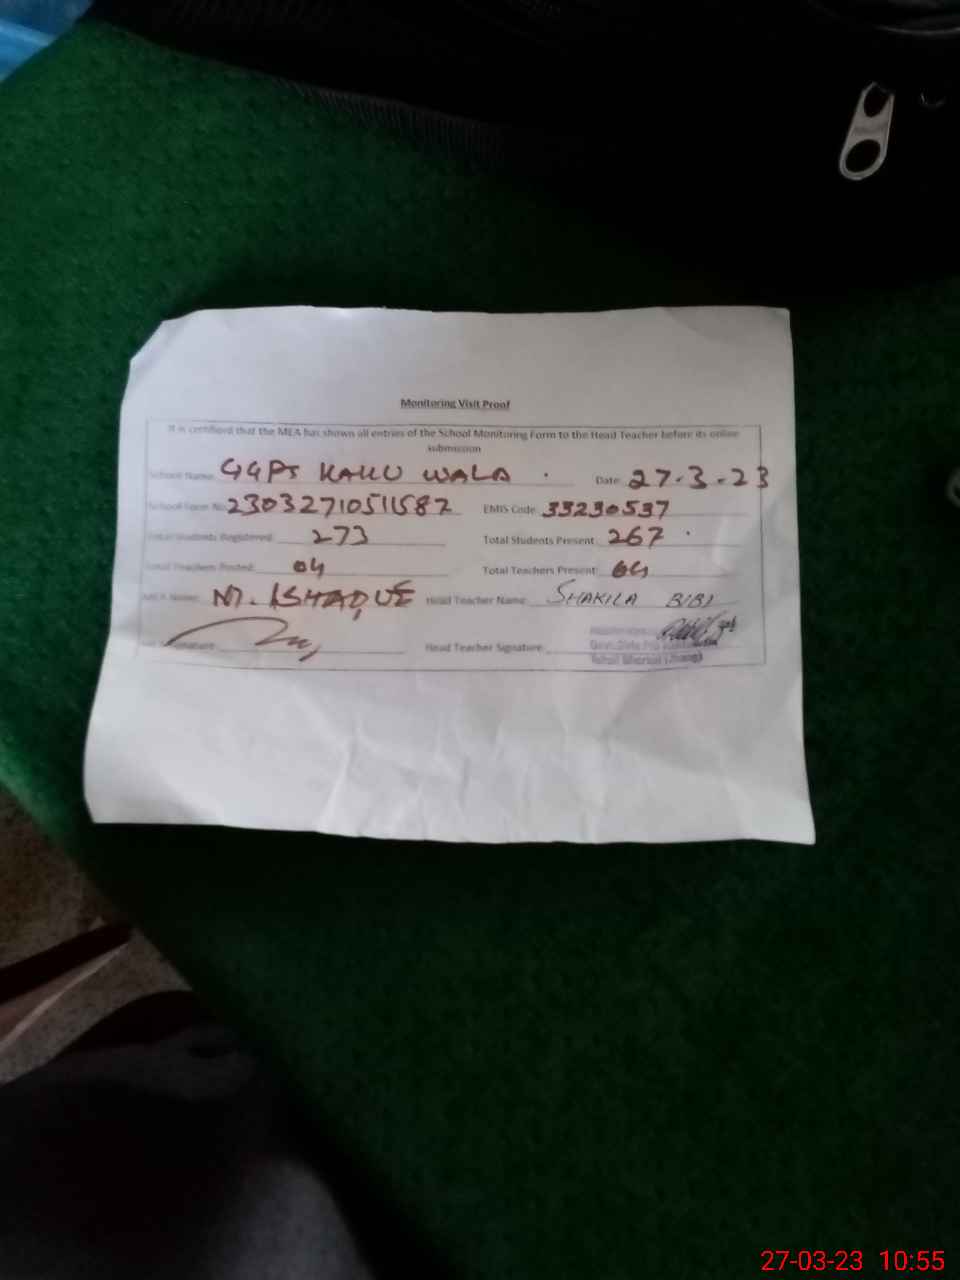 Monitoring Visit Proof
It is certified that the MEA has shown all entries of the School Monitoring Form to the Head Teacher before its online
submission
School Name: GGPS KAKU WALA Date: 27-3-23
School Form No: 23032710511587 EMIS Code: 33230537
Total Students Registered: 273 Total Students Present: 267
Total Teachers Posted: 04 Total Teachers Present: 04
MEA Name: M. ISHAQUE Head Teacher Name: SHAKILA BIBI
Signature: Head Teacher Signature:
27-03-23 10:55